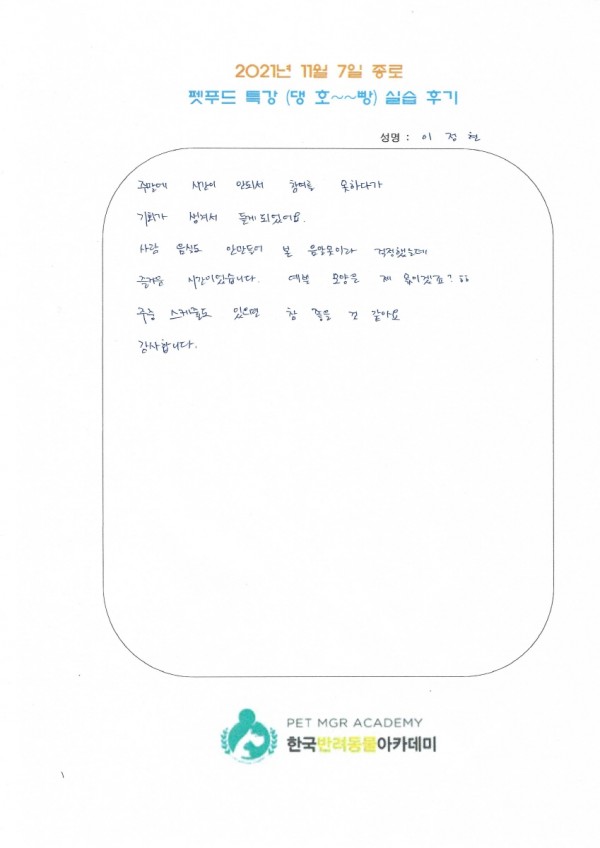 2021년 11월 7일 종로
펫푸드 특강 (댕 호~~빵) 실습 후기
성명 : 이 정 현
주말에 시간이 안되서 참여를 못하다가
기회가 생겨서 듣게되었어요.
사람 음식도 안만들어 본 음알못이라 걱정했는데
즐거운 시간이었습니다. 예쁜 모양은 제 몫이겠죠? ㅎㅎ
주중 스케줄도 있으면 참 좋을 건 같아요
감사합니다.
PET MGR ACADEMY
한국반려동물아카데미